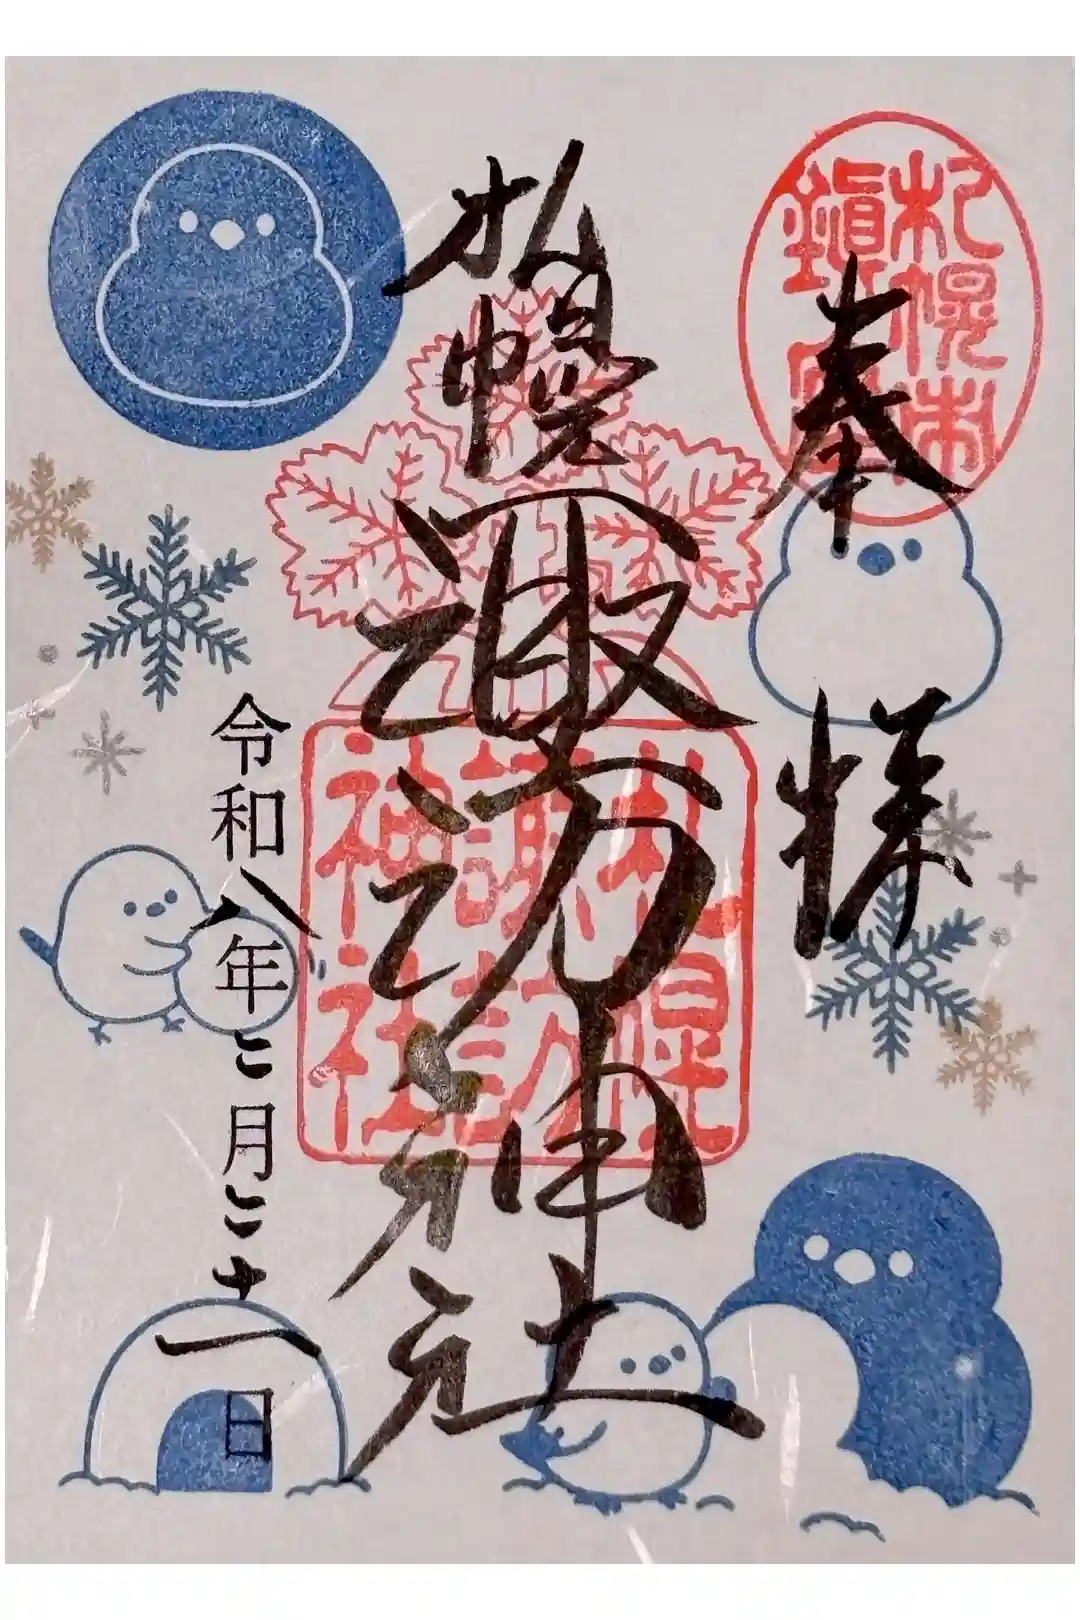 奉拝
札幌市
鎮
札幌諏訪神社
札幌
諏訪
神社
令和八年二月二十一日